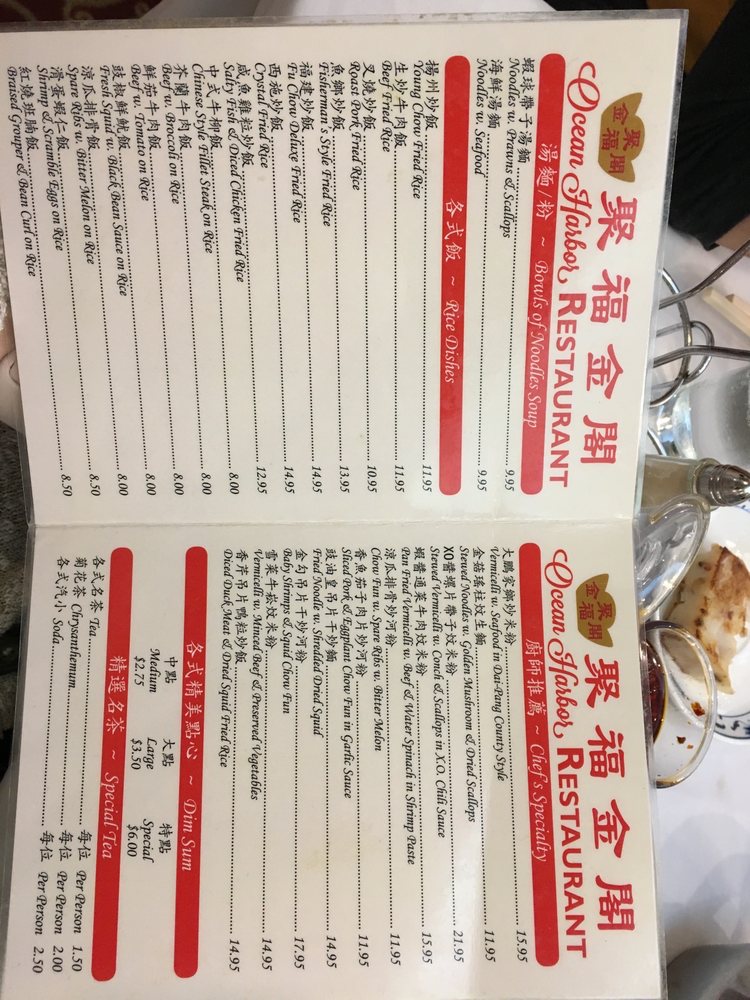 聚福金閣
聚福
金閣
Ocean Harbor RESTAURANT
湯麵/粉 ~ Bowls of Noodles Soup
蝦球帶子湯麵
Noodles w. Prawns & Scallops 9.95
海鮮湯麵
Noodles w. Seafood 9.95
各式飯 ~ Rice Dishes
揚州炒飯
Young Chow Fried Rice 11.95
生炒牛肉飯
Beef Fried Rice 11.95
叉燒炒飯
Roast Pork Fried Rice 10.95
魚鄉炒飯
Fisherman's Style Fried Rice 13.95
福建炒飯
Fu Chow Deluxe Fried Rice 14.95
西施炒飯
Crystal Fried Rice 12.95
咸魚雞粒炒飯
Salty Fish & Diced Chicken Fried Rice 14.95
中式牛柳飯
Chinese Style Fillet Steak on Rice 8.00
芥蘭牛肉飯
Beef w. Broccoli on Rice 8.00
鮮茄牛肉飯
Beef w. Tomato on Rice 8.00
豉椒鮮魷飯
Fresh Squid w. Black Bean Sauce on Rice 8.00
涼瓜排骨飯
Spare Ribs w. Bitter Melon on Rice 8.00
滑蛋蝦仁飯
Shrimp & Scramble Eggs on Rice 8.50
紅燒班腩飯
Braised Grouper & Bean Curl on Rice 8.50
聚福金閣
聚福
金閣
Ocean Harbor RESTAURANT
廚師推薦 ~ Chef's Specialty
大鵬家鄉炒米粉
Vermicelli w. Seafood in Dai-Pang County Style 15.95
金菇瑤柱炆生麵
Stewed Noodles w. Golden Mushroom & Dried Scallops 11.95
XO醬螺片帶子炆米粉
Stewed Vermicelli w. Conch & Scallops in X.O. Chili Sauce 21.95
蝦醬通菜牛肉炆米粉
Pan Fried Vermicelli w. Beef & Water Spinach in Shrimp Paste 15.95
涼瓜排骨炒河粉
Chow Fun w. Spare Ribs w. Bitter Melon 11.95
香魚茄子肉片炒河粉
Sliced Pork & Eggplant Chow Fun in Garlic Sauce 11.95
豉油皇吊片干炒麵
Fried Noodle w. Shredded Dried Squid 14.95
金勾吊片干炒河粉
Baby Shrimps & Squid Chow Fun 17.95
雪菜牛崧炆米粉
Vermicelli w. Minced Beef & Preserved Vegetables 14.95
香芹吊片鴨粒炒飯
Diced Duck Meat & Dried Squid Fried Rice 14.95
各式精美點心 ~ Dim Sum
中點 大點 特點
Medium Large Special
$2.75 $3.50 $6.00
精選名茶 ~ Special Tea
各式名茶 Tea 每位 Per Person 1.50
菊花茶 Chrysanthemum 每位 Per Person 2.00
各式汽小 Soda 每位 Per Person 2.50